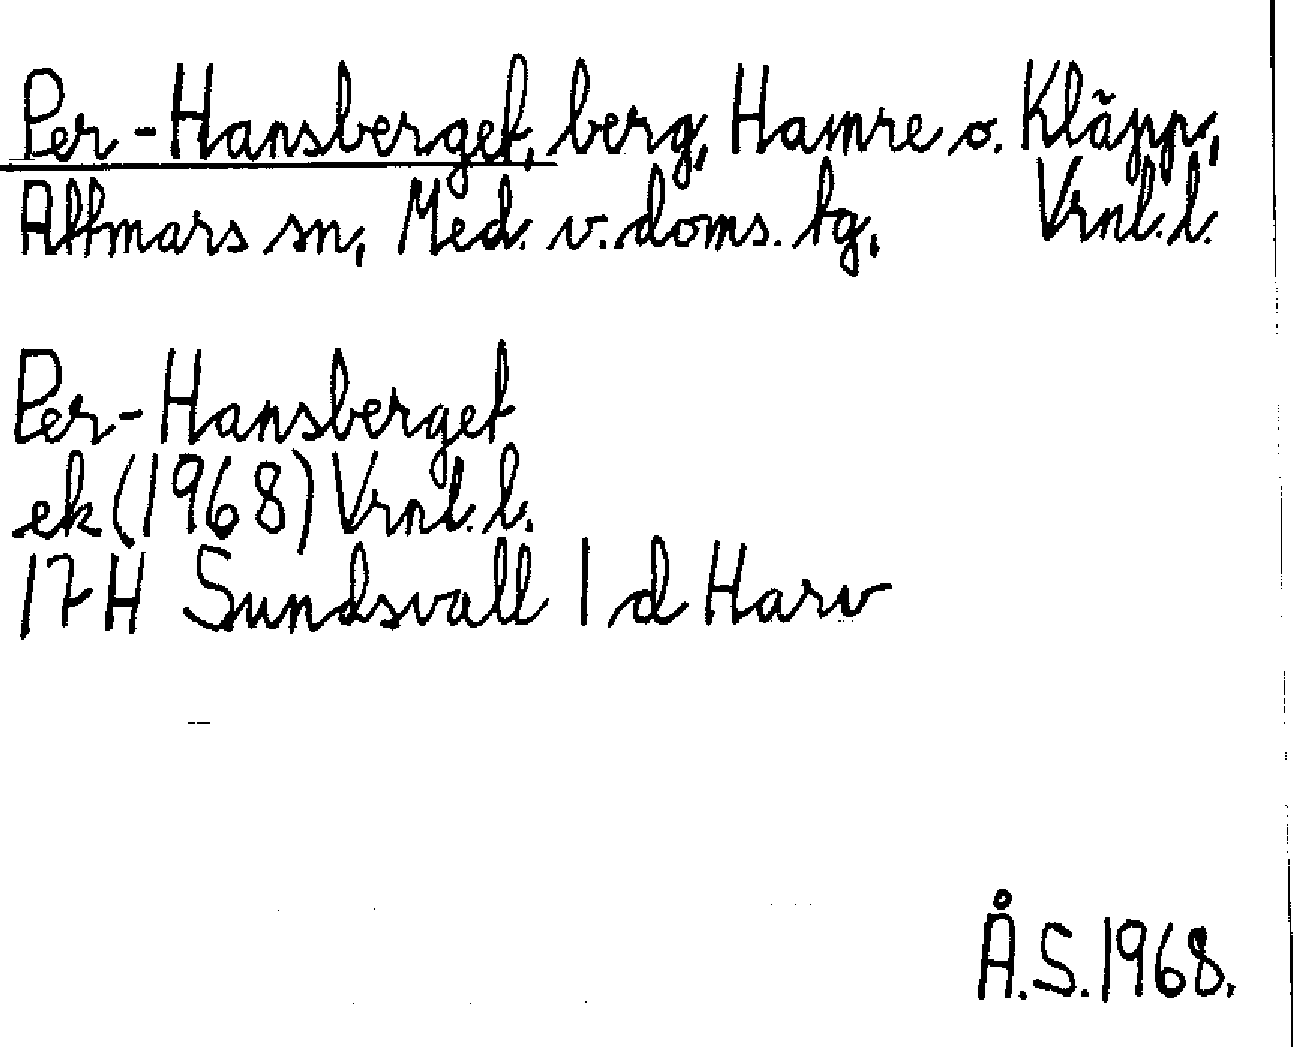 Per-Hansberget, berg, Hamre o. Kläpp,
Attmars sn, Med. v. doms. tg. Vrnl. l.
Per-Hansberget
ek (1968) Vrnl. l.
17H Sundsvall 1 d Harv
Å.S. 1968.